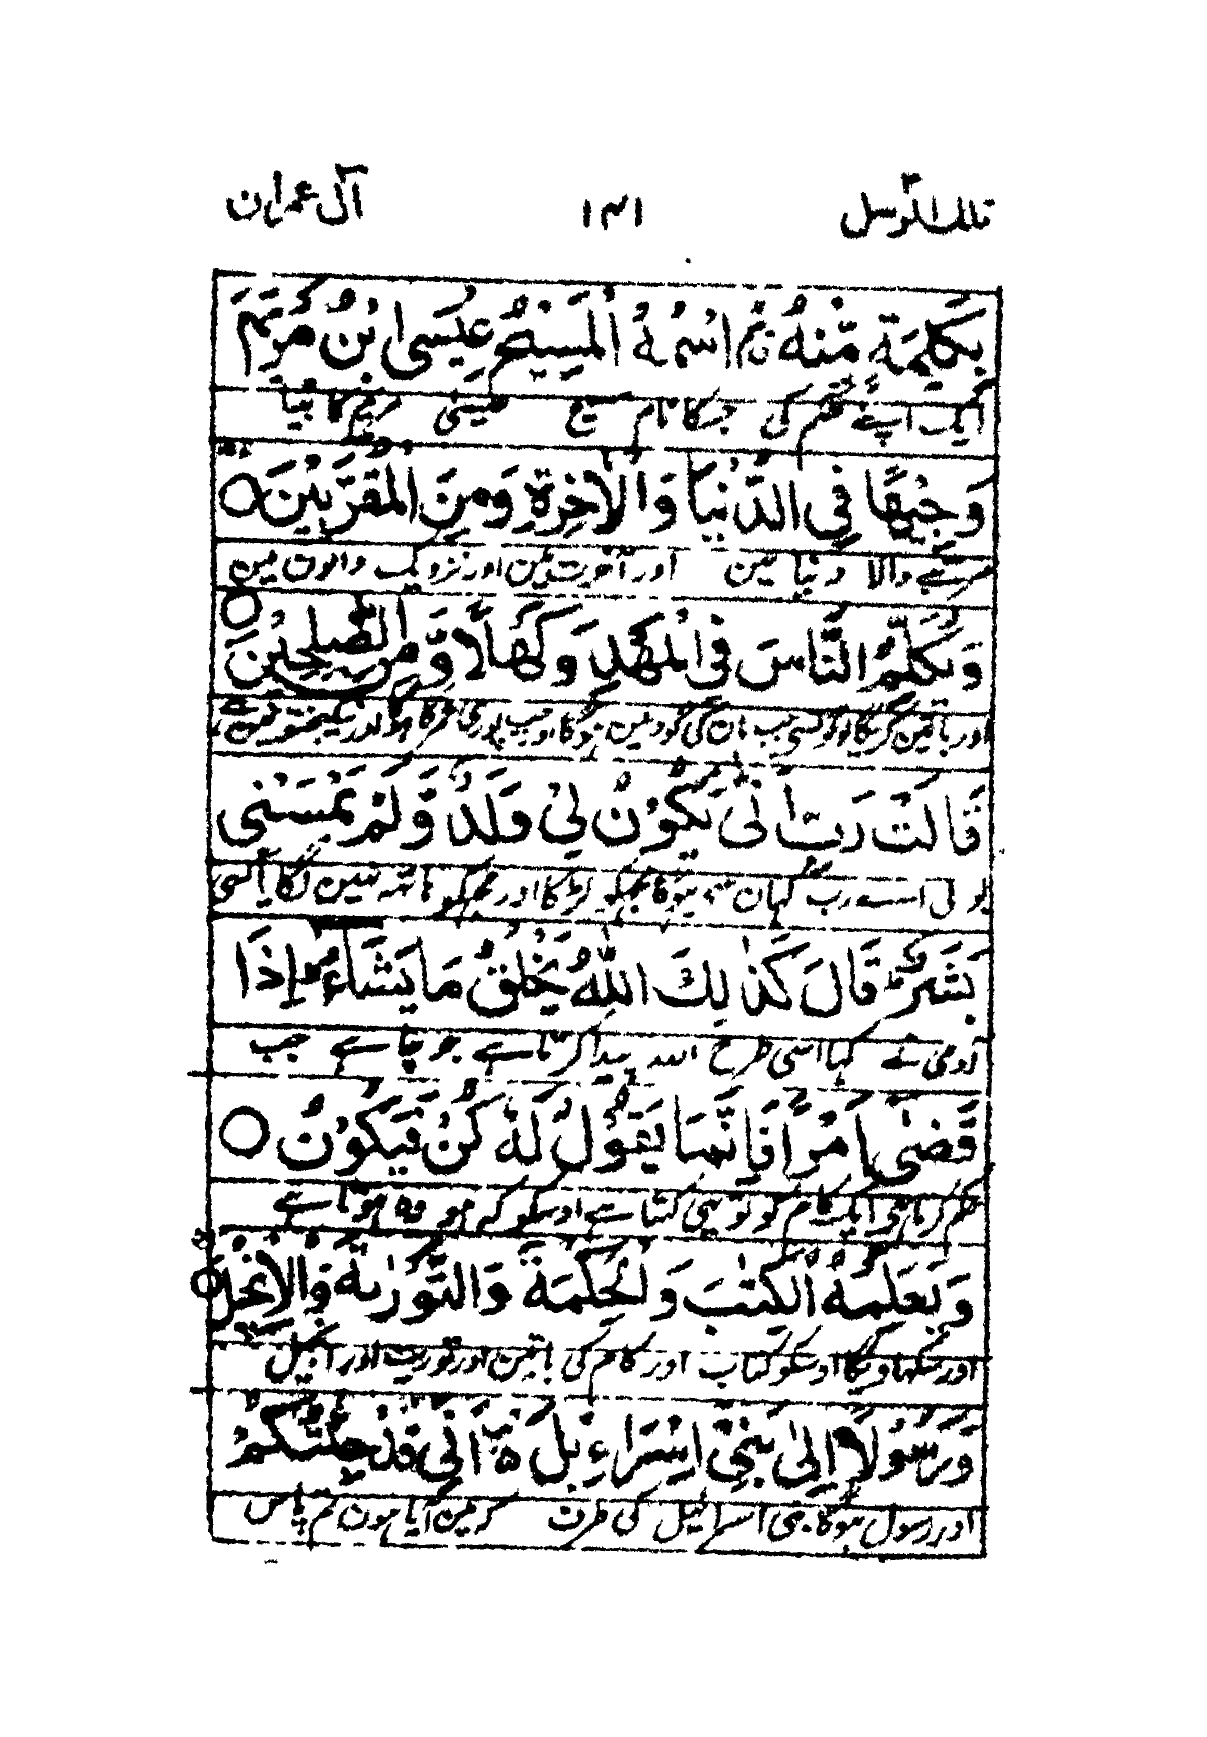 تلك الرسل ۳ ۱۴۱ آل عمران ۳
بِكَلِمَةٍ مِّنْهُ اسْمُهُ الْمَسِيْحُ عِيْسَى ابْنُ مَرْيَمَ
ایک اپنے حکم کی جسکا نام مسیح عیسیٰ مریم کا بیٹا
وَجِيْهًا فِي الدُّنْيَا وَالْاٰخِرَةِ وَمِنَ الْمُقَرَّبِيْنَ ○
مرتبے والا دنیا مین اور آخرت مین اور نزدیک والون مین
وَيُكَلِّمُ النَّاسَ فِي الْمَهْدِ وَكَهْلًا وَّمِنَ الصّٰلِحِيْنَ ○
اور باتین کریگا لوگونسی جب مان کی گود مین ہوگا اور جب پوری عمر کا ہوگا اور نیکبختون مین ہے
قَالَتْ رَبِّ اَنّٰى يَكُوْنُ لِيْ وَلَدٌ وَّلَمْ يَمْسَسْنِيْ
بولی اے رب کہان سے ہوگا مجھکو لڑکا اور مجھکو ہاتھ نہین لگایا کسی
بَشَرٌ قَالَ كَذٰلِكِ اللّٰهُ يَخْلُقُ مَا يَشَاءُ اِذَا
آدمی نے کہا اسی طرح اللہ پیدا کرتا ہے جو چاہے جب
قَضٰى اَمْرًا فَاِنَّمَا يَقُوْلُ لَهٗ كُنْ فَيَكُوْنُ ○
حکم کرتا ہی ایک کام کو تو یہی کہتا ہے اوسکو کہ ہو وہ ہوتا ہے
وَيُعَلِّمُهُ الْكِتٰبَ وَالْحِكْمَةَ وَالتَّوْرٰىةَ وَالْاِنْجِيْلَ ○
اور سکھاویگا اوسکو کتاب اور کام کی باتین اور توریت اور انجیل
وَرَسُوْلًا اِلٰى بَنِيْ اِسْرَاءِيْلَ اَنِّيْ قَدْ جِئْتُكُمْ
اور رسول ہوگا بنی اسرائیل کی طرف کہ مین آیا ہون تم پاس